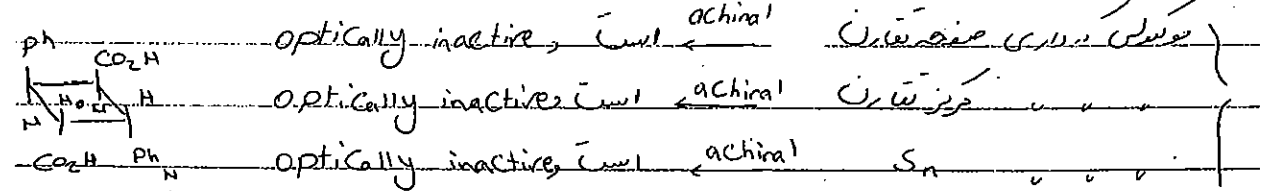 مولکول دارای صفحه تقارن achiral ← است و optically inactive
〃 〃 〃 مرکز تقارن achiral ← است و optically inactive
〃 〃 〃 Sn achiral ← است و optically inactive
Ph
CO2H
H H
H
CO2H Ph H